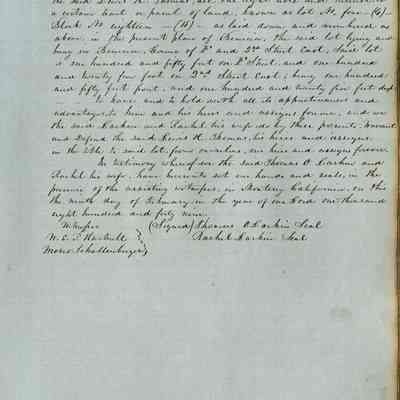 a certain tract or parcel of land, known as Lot No. four (4)
Block No eighteen (18) as laid down and numbered as
above, in the present plan of Benicia, the said lot lying and
being in Benicia, Corner of D and 2nd Street East, said lot
is one hundred and fifty feet on D Street, and one hundred
and twenty five feet on 2nd Street East; being one hundred
and fifty feet front, and one hundred and twenty five feet deep
To have and to hold with all its appurtenances and
advantages, to him and his heirs and assigns forever, and we
the said Larkin and Rachel his wife do by these presents, Warrant
and Defend the said H. Thomas, his heirs and assigns
in the title to said lot, from ourselves, our heirs and assigns forever.
In testimony whereof we the said Thomas O Larkin and
Rachel his wife, have hereunto set our hands and seals, in the
presence of the assisting witnesses, in Monterey California, on this
the ninth day of February in the year of our Lord one thousand
eight hundred and forty nine.
Witnesses (Signed) Thomas O Larkin Seal
W. E. P. Hartnell Rachel Larkin Seal
Moses Schallenberger